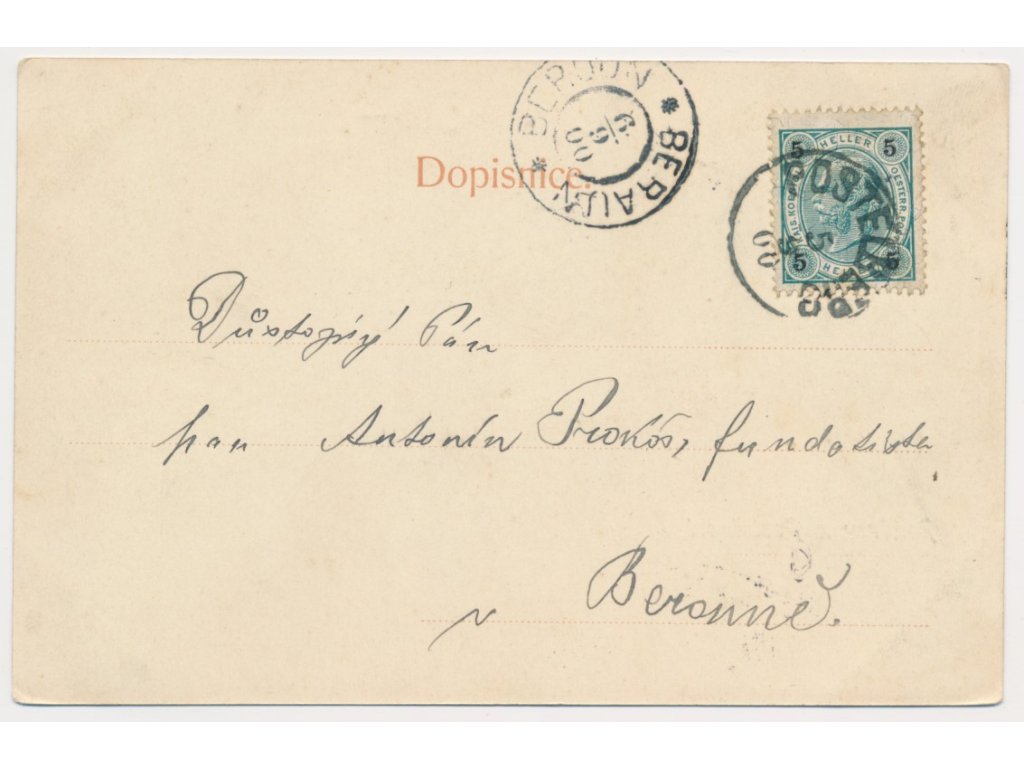 BEROUN * BERAUN *
6/9 00
Dopisnice.
5 HELLER 5
KAIS. KOENIGL. OESTERR. POST
5 HELLER 5
POSTELBERG
5 9 00
Důstojný Pán
pan Antonín Prokóš, fundatista
v Berouně.